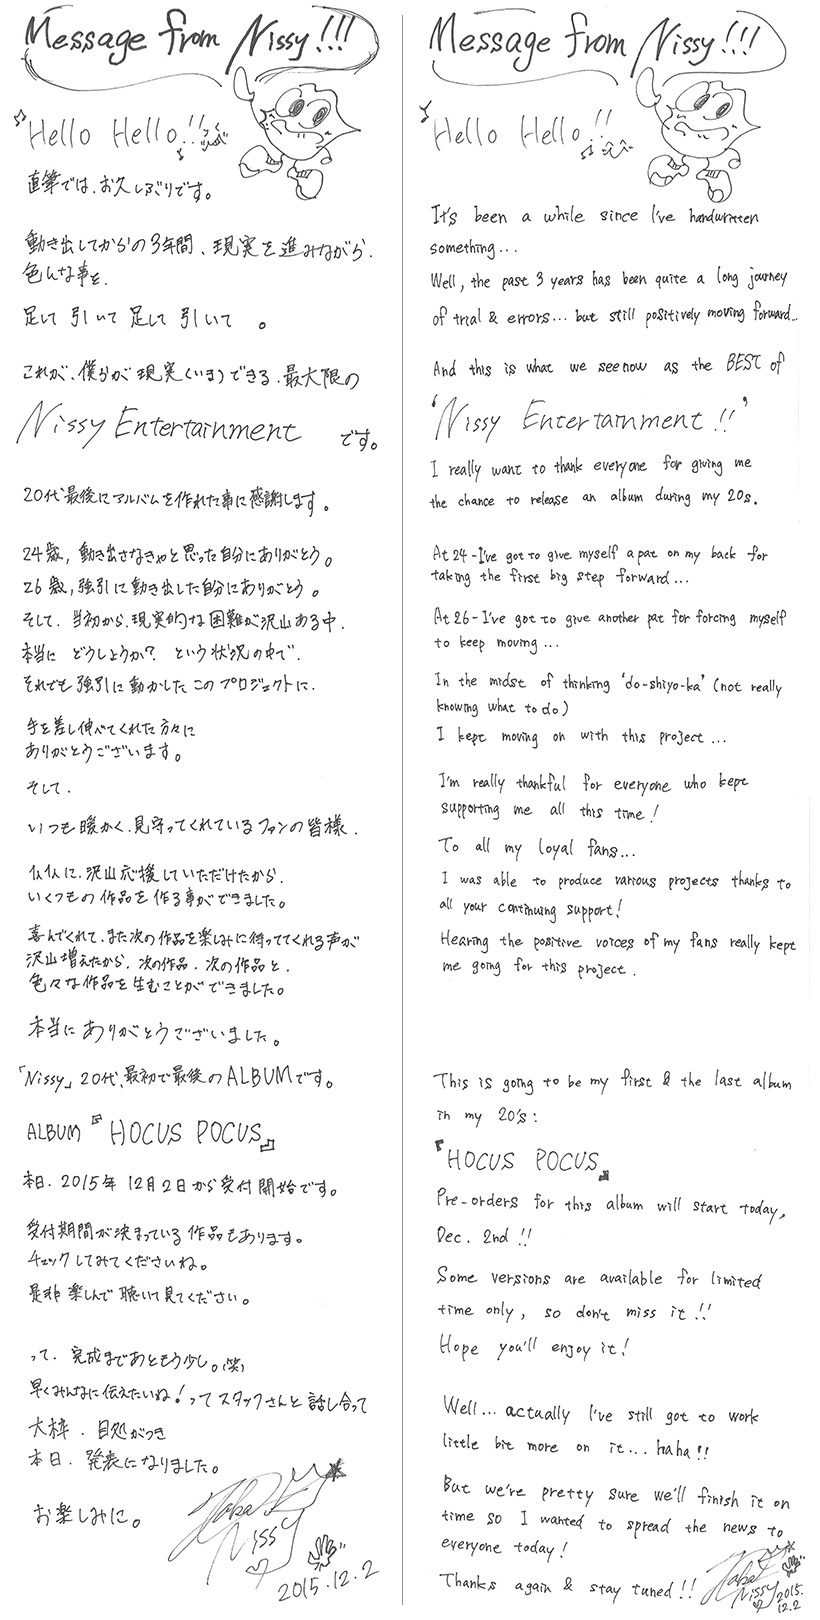 Message from Nissy!!!
Hello Hello!!
直筆では、お久しぶりです。
動き出してからの3年間、現実を進みながら、
色んな事を、
足して 引いて 足して 引いて 。
これが、僕らが現実(いま)できる、最大限の
Nissy Entertainment です。
20代最後にアルバムを作れた事に感謝します。
24歳、動き出さなきゃと思った自分にありがとう。
26歳、強引に動き出した自分にありがとう。
そして、当初から、現実的な困難が沢山ある中、
本当に どうしようか? という状況の中で、
それでも強引に動かしたこのプロジェクトに、
手を差し伸べてくれた方々に
ありがとうございます。
そして、
いつも暖かく、見守ってくれているファンの皆様、
仏仏に、沢山応援していただけたから、
いくつもの作品を作る事ができました。
喜んでくれて、また次の作品を楽しみに待っててくれる声が
沢山増えたから、次の作品、次の作品と、
色々な作品を生むことができました。
本当にありがとうございました。
「Nissy」20代、最初で最後のALBUMです。
ALBUM『HOCUS POCUS』
本日、2015年12月2日から受付開始です。
受付期間が決まっている作品もあります。
チェックしてみてくださいね。
是非楽しんで聴いて見てください。
って、完成まであともう少し。(笑)
早くみんなに伝えたいね!ってスタッフさんと話し合って
大枠、目処がつき
本日、発表になりました。
お楽しみに。
Nissy
2015.12.2
Message from Nissy!!!
Hello Hello!!
It's been a while since I've handwritten
something...
Well, the past 3 years has been quite a long journey
of trial & errors... but still positively moving forward...
And this is what we see now as the BEST of
'Nissy Entertainment!!'
I really want to thank everyone for giving me
the chance to release an album during my 20s.
At 24 - I've got to give myself a pat on my back for
taking the first big step forward...
At 26 - I've got to give another pat for forcing myself
to keep moving...
In the midst of thinking 'do-shiyo-ka' (not really
knowing what to do)
I kept moving on with this project...
I'm really thankful for everyone who kept
supporting me all this time!
To all my loyal fans...
I was able to produce various projects thanks to
all your continuing support!
Hearing the positive voices of my fans really kept
me going for this project.
This is going to be my first & the last album
in my 20's:
『HOCUS POCUS』
Pre-orders for this album will start today,
Dec. 2nd!!
Some versions are available for limited
time only, so don't miss it!!
Hope you'll enjoy it!
Well... actually I've still got to work
little bit more on it... haha!!
But we're pretty sure we'll finish it on
time so I wanted to spread the news to
everyone today!
Thanks again & stay tuned!!
Nissy
2015.
12.2